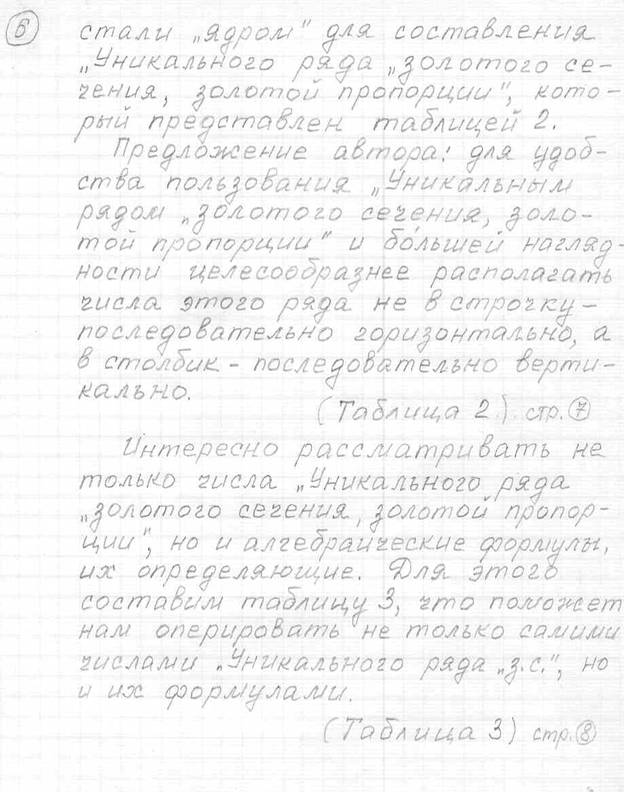 6
стали „ядром" для составления
„Уникального ряда „золотого се-
чения, золотой пропорции", кото-
рый представлен таблицей 2.
Предложение автора: для удоб-
ства пользования „Уникальным
рядом „золотого сечения, золо-
той пропорции" и бо́льшей нагляд-
ности целесообразнее располагать
числа этого ряда не в строчку –
последовательно горизонтально, а
в столбик – последовательно верти-
кально.
(Таблица 2) стр. 7
Интересно рассматривать не
только числа „Уникального ряда
„золотого сечения, золотой пропор-
ции", но и алгебраические формулы,
их определяющие. Для этого
составим таблицу 3, что поможет
нам оперировать не только самими
числами „Уникального ряда „з.с.", но
и их формулами.
(Таблица 3) стр. 8